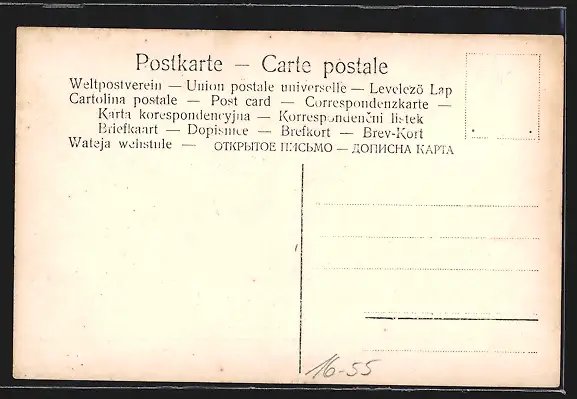 Postkarte — Carte postale
Weltpostverein — Union postale universelle — Levelező Lap
Cartolina postale — Post card — Correspondenzkarte —
Karta korespondencyjna — Korrespondenční listek
Briefkaart — Dopisnice — Brefkort — Brev-Kort
Wateja wehstule — ОТКРЫТОЕ ПИСЬМО — ДОПИСНА КАРТА
16-55